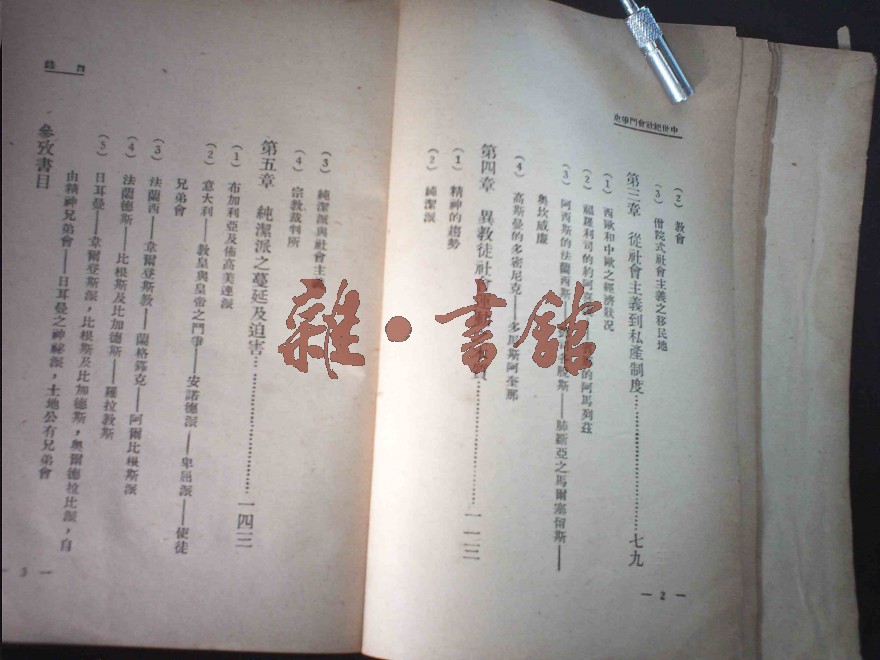 中世紀社會鬥爭史
(2) 教會
(3) 僧院式社會主義之移民地
第三章 從社會主義到私產制度……七九
(1) 西歐和中歐之經濟狀況
(2) 福羅利司的約阿 的阿馬列茲
(3) 阿西斯的法蘭西斯 斯——肺斯亞之馬爾塞留斯——
奧坎威廉
(4) 高斯曼的多密尼克——多馬斯阿奎那
第四章 異教徒社會 ……一一三
(1) 精神的趨勢
(2) 純潔派
— 2 —
目錄
(3) 純潔派與社會主義
(4) 宗教裁判所
第五章 純潔派之蔓延及迫害……一四三
(1) 布加利亞及佈高美達派
(2) 意大利——教皇與皇帝之鬥爭——安諾德派——卑屈派——使徒
兄弟會
(3) 法蘭西——韋爾登斯教——蘭格篛克——阿爾比根斯派
(4) 法蘭德斯——比根斯及比加德斯——羅拉教斯
(5) 日耳曼——韋爾登斯派，比根斯及比加德斯，奧爾德拉比派，自
由精神兄弟會——日耳曼之神祕派，土地公有兄弟會
參攷書目
— 3 —
雜·書館